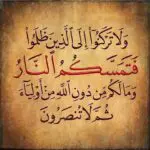 وَلَا تَرْكَنُوا إِلَى الَّذِينَ ظَلَمُوا
فَتَمَسَّكُمُ النَّارُ
وَمَا لَكُم مِّن دُونِ اللَّهِ مِنْ أَوْلِيَاءَ
ثُمَّ لَا تُنصَرُونَ